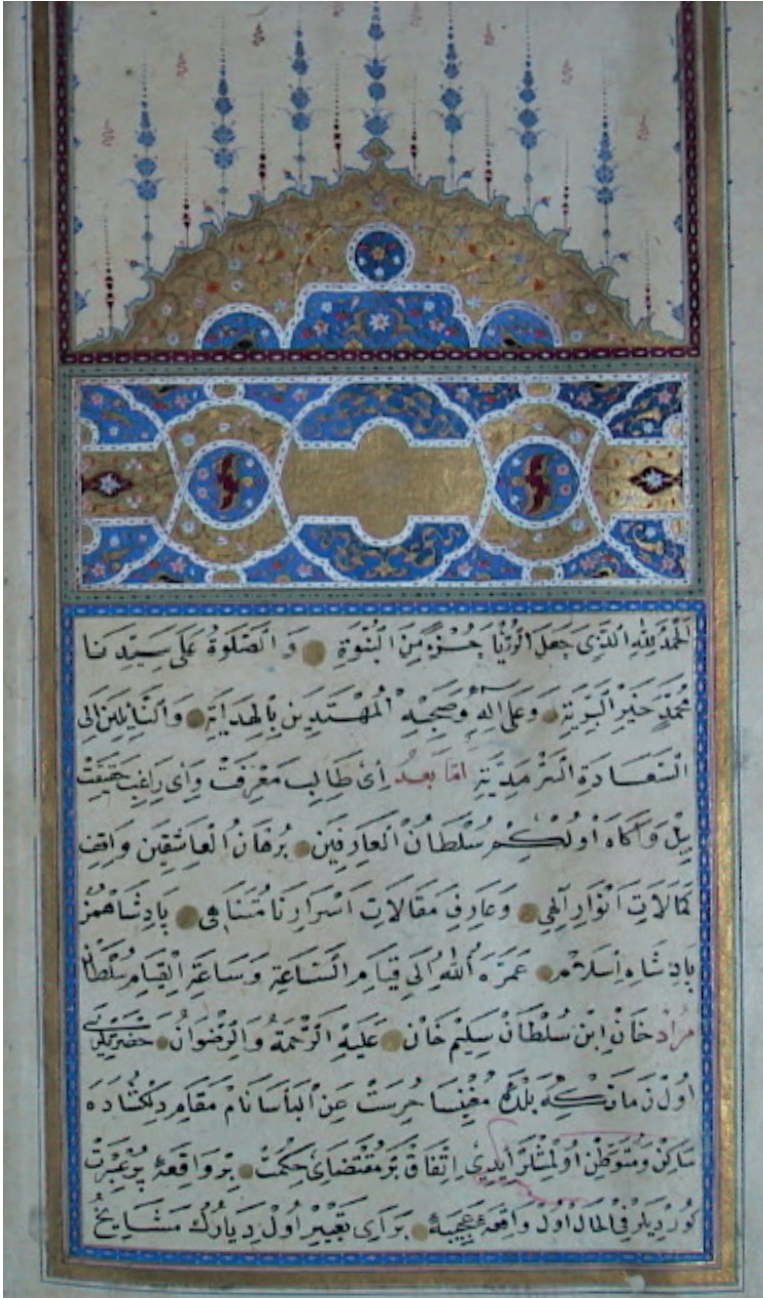 الحمد لله الذى جعل الرؤيا جزء من النبوة والصلوة على سيدنا
محمد خير البرية وعلى اله وصحبه المهتدين بالهداية والنايلين الى
السعادة السرمدية اما بعد اى طالب معرفت واى راغب حقيقت
بيل واكاه اولكم سلطان العارفين برهان العاشقين واقف
كمالات انوار الهى وعارف مقالات اسرار نامتناهى پادشاهمز
پادشاه اسلام عمره الله الى قيام الساعة وساعة القيام سلطان
مراد خان ابن سلطان سليم خان عليه الرحمة والرضوان حضرتلرى
اول زمانكه بلده مغنيسا حرست عن البأسا نام مقام دلكشاده
ساكن ومتوطن اولمشلر ايدى اتفاق بر مقتضاى حكمت بر واقعۀ پرعبرت
كورديلر فى الحال اول واقعۀ عجيبه براى تعبير اول ديارك مشايخ